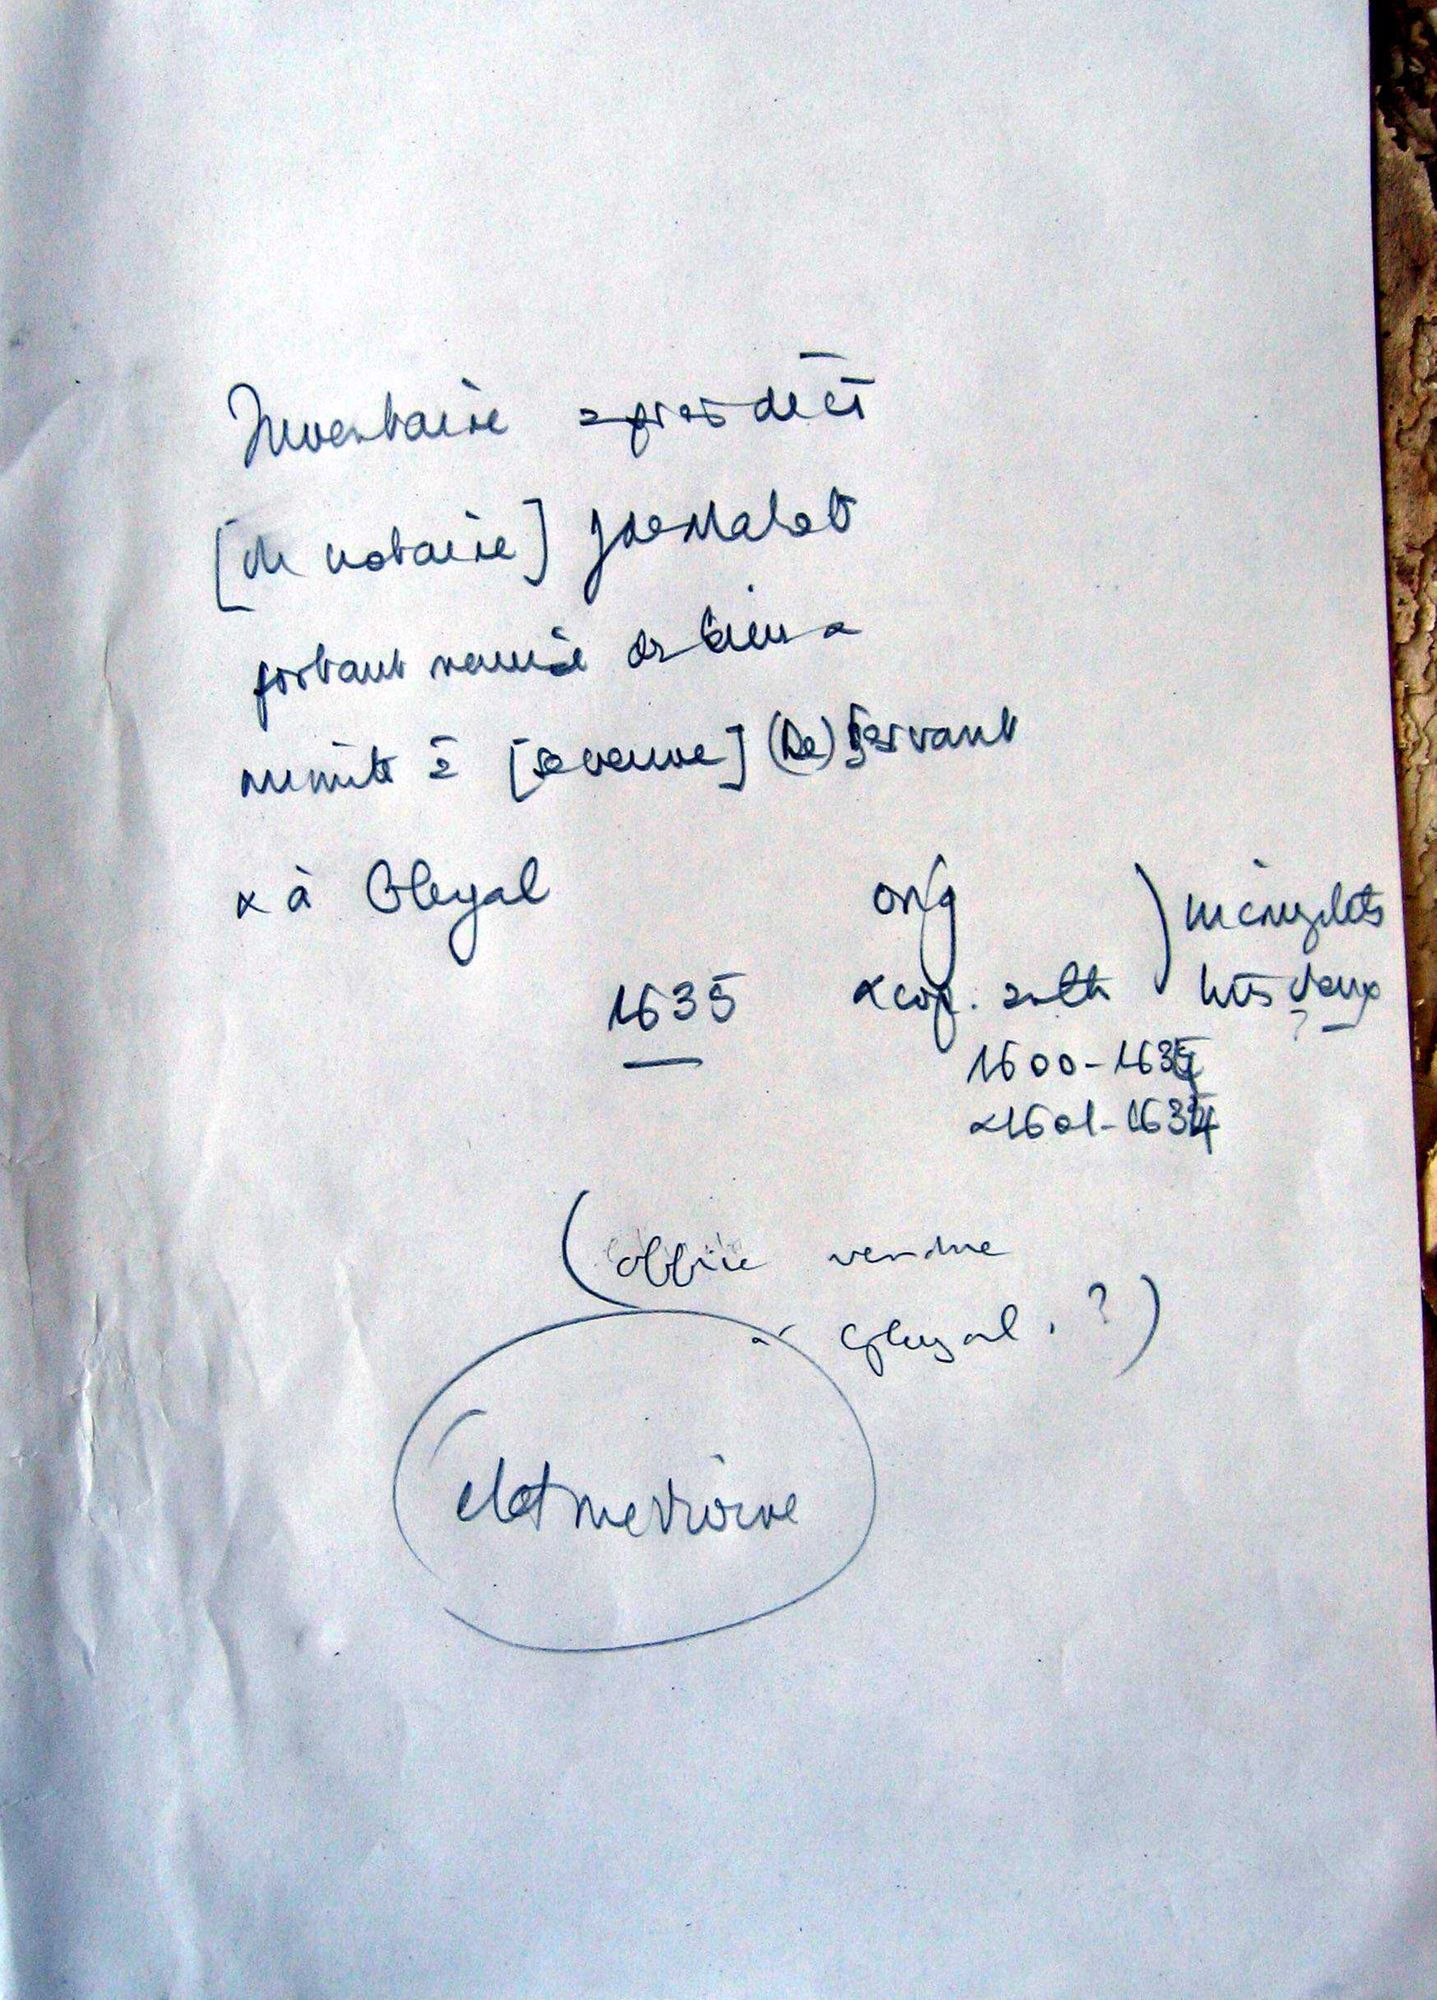 Inventaire après décès
[de notaire] Malet
portant remise de biens
remit à [sa veuve] (De) Servant
& à Gleyal
1635
orig
& cop. auth
) incomplets
tous deux
?
1600-1635
& 1601-1634
(office vendue
à Gleyal. ?)
état médiocre